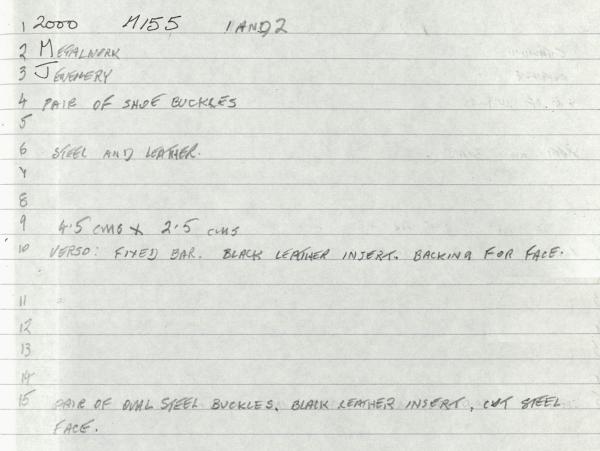 1 2000 M155 1 AND 2
2 METALWORK
3 JEWELLERY
4 PAIR OF SHOE BUCKLES
5
6 STEEL AND LEATHER.
7
8
9 4.5 cms x 2.5 cms
10 VERSO: FIXED BAR. BLACK LEATHER INSERT. BACKING FOR FACE.
11
12
13
14
15 PAIR OF OVAL STEEL BUCKLES. BLACK LEATHER INSERT, CUT STEEL
FACE.